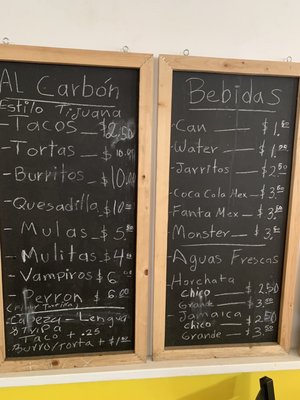 AL Carbón
Estilo Tijuana
-Tacos — $2.50
-Tortas — $10.00
-Burritos — $10.00
-Quesadilla $10.00
-Mulas — $5.00
-Mulitas $4.00
-Vampiros $6.00
-Perron $6.00
Cabeza - Lengua
Tripa
Taco + .25
Burro/Torta + $1.00
Bebidas
-Can — $1.50
-Water — $1.00
-Jarritos — $2.50
-Coca Cola Mex — $3.50
-Fanta Mex — $3.50
-Monster — $3.50
Aguas Frescas
-Horchata
Chico — $2.50
Grande — $3.50
-Jamaica
Chico — $2.50
Grande — $3.50